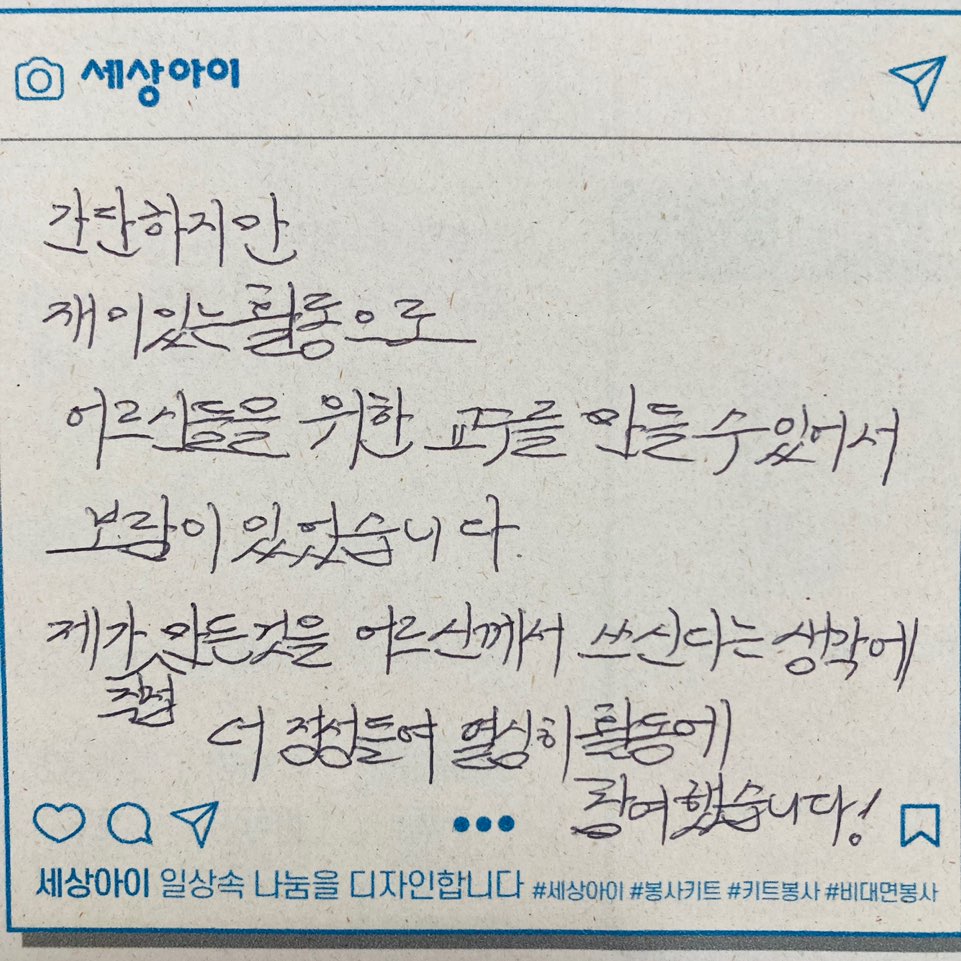 세상아이
간단하지만
재미있는 활동으로
어르신들을 위한 교구를 만들 수 있어서
보람이 있었습니다.
제가 직접 만든것을 어르신께서 쓰신다는 생각에
더 정성들여 열심히 활동에
참여했습니다!
세상아이 일상속 나눔을 디자인합니다 #세상아이 #봉사키트 #키트봉사 #비대면봉사